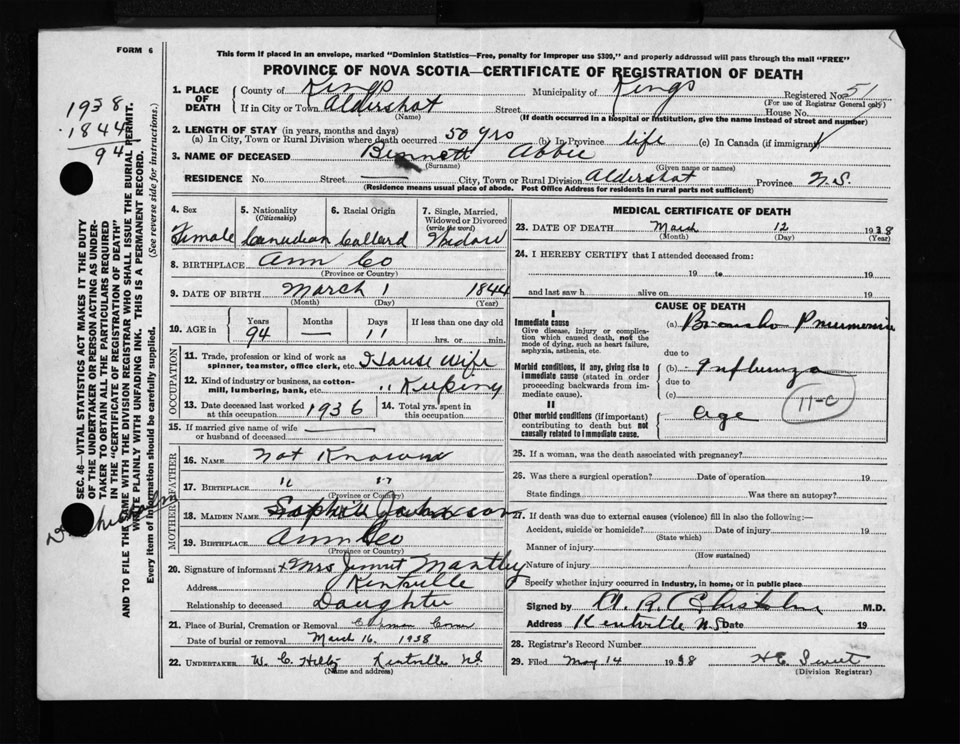 FORM 6
This form if placed in an envelope, marked "Dominion Statistics—Free, penalty for improper use $300," and properly addressed will pass through the mail "FREE"
PROVINCE OF NOVA SCOTIA—CERTIFICATE OF REGISTRATION OF DEATH
1938
1844
94
SEC. 46—VITAL STATISTICS ACT MAKES IT THE DUTY
OF THE UNDERTAKER OR PERSON ACTING AS UNDER-
TAKER TO OBTAIN ALL THE PARTICULARS REQUIRED
IN THE "CERTIFICATE OF REGISTRATION OF DEATH"
AND TO FILE THE SAME WITH THE DIVISION REGISTRAR WHO SHALL ISSUE THE BURIAL PERMIT.
WRITE PLAINLY WITH UNFADING INK. THIS IS A PERMANENT RECORD.
Every item of information should be carefully supplied. (See reverse side for instructions.)
1. PLACE OF DEATH
County of Kings Municipality of Kings Registered No. 51
(For use of Registrar General only)
If in City or Town Aldershot Street House No.
(Name) (If death occurred in a hospital or institution, give the name instead of street and number)
2. LENGTH OF STAY (in years, months and days)
(a) In City, Town or Rural Division where death occurred 50 yrs (b) In Province life (c) In Canada (if immigrant)
3. NAME OF DECEASED Bennett Abbie
(Surname) (Given name or names)
RESIDENCE No. Street City, Town or Rural Division Aldershot Province N.S.
(Residence means usual place of abode. Post Office Address for residents in rural parts not sufficient)
4. Sex 5. Nationality (Citizenship) 6. Racial Origin 7. Single, Married, Widowed or Divorced (write the word)
Female Canadian Collard Widow
8. BIRTHPLACE Ann Co
(Province or Country)
9. DATE OF BIRTH March 1 1844
(Month) (Day) (Year)
10. AGE in Years Months Days If less than one day old
94 — 11 hrs. or min.
OCCUPATION
11. Trade, profession or kind of work as spinner, teamster, office clerk, etc. House Wife
12. Kind of industry or business, as cotton-mill, lumbering, bank, etc. " Keeping
13. Date deceased last worked at this occupation 1936 14. Total yrs. spent in this occupation
15. If married give name of wife or husband of deceased
FATHER
16. NAME Not Known
17. BIRTHPLACE " "
(Province or Country)
MOTHER
18. MAIDEN NAME
19. BIRTHPLACE Ann Co
(Province or Country)
20. Signature of informant x Mrs Mantley
Address Kentville
Relationship to deceased Daughter
21. Place of Burial, Cremation or Removal
Date of burial or removal March 16. 1938
22. UNDERTAKER W. C. Kentville NS
(Name and address)
MEDICAL CERTIFICATE OF DEATH
23. DATE OF DEATH March 12 1938
(Month) (Day) (Year)
24. I HEREBY CERTIFY that I attended deceased from:
19 to 19
and last saw h alive on 19
CAUSE OF DEATH
I
Immediate cause
Give disease, injury or complication which caused death, not the mode of dying, such as heart failure, asphyxia, asthenia, etc.
(a) Broncho Pneumonia
due to
Morbid conditions, if any, giving rise to immediate cause (stated in order proceeding backwards from immediate cause).
(b) Influenza
due to
(c)
11-c
II
Other morbid conditions (if important) contributing to death but not causally related to immediate cause.
Age
25. If a woman, was the death associated with pregnancy?
26. Was there a surgical operation? Date of operation 19
State findings Was there an autopsy?
27. If death was due to external causes (violence) fill in also the following:—
Accident, suicide or homicide? Date of injury 19
(State which)
Manner of injury
(How sustained)
Nature of injury
Specify whether injury occurred in industry, in home, or in public place
Signed by Chisholm M.D.
Address Kentville NS Date 19
28. Registrar's Record Number
29. Filed May 14 1938
(Division Registrar)